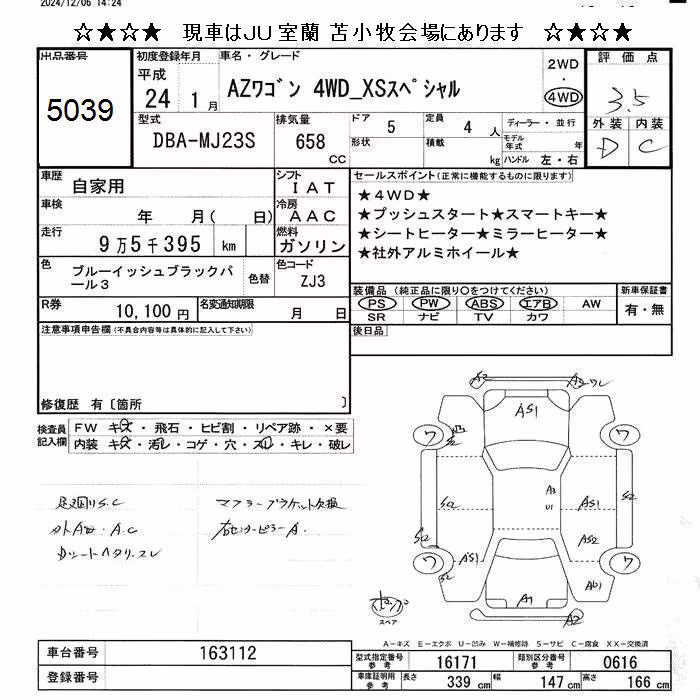 2024/12/06 14:24
☆★☆★　現車はJU室蘭 苫小牧会場にあります　☆★☆★
出品番号
5039
初度登録年月
平成
24 1月
車名・グレード
AZﾜｺﾞﾝ 4WD_XSｽﾍﾟｼｬﾙ
2WD
・
4WD
評価点
3.5
外装 内装
D C
型式
DBA-MJ23S
排気量
658
cc
ドア
5
定員
4 人
形状
積載
kg
ディーラー・並行
モデル年式 年
ハンドル 左・右
車歴
自家用
シフト
IAT
車検
年 月( 日)
冷房
AAC
走行
9万5千395 km
燃料
ガソリン
色
ブルーイッシュブラックパール3
色替
色コード
ZJ3
R券
10,100円
名変通知期限
月 日
セールスポイント(正常に機能するものに限ります)
★4WD★
★プッシュスタート★スマートキー★
★シートヒーター★ミラーヒーター★
★社外アルミホイール★
装備品 (純正品に限り○をつけてください)
PS PW ABS エアB AW
SR ナビ TV カワ
新車保証書
有・無
後日品
注意事項申告欄(不具合内容等は具体的に記入して下さい)
修復歴 有〔箇所 〕
検査員記入欄
FW キズ・飛石・ヒビ割・リペア跡・×要
内装 キズ・汚れ・コゲ・穴・スレ・キレ・破レ
足廻りS.C
外A凹.A.C
Dシートヘタリ.スレ
マフラーブラケット欠損
右センターピラーA.
A2
ワレ
AS1
ワ
ワ
S2
A3
U1
S2
AS1
S2
AS2
S2
AS1
ワ
ワ
S2
AU1
A1
A2
スペア
A－キズ E－エクボ U－凹み W－補修跡 S－サビ C－腐食 XX－交換済
車台番号
163112
登録番号
型式指定番号
参考
16171
類別区分番号
参考
0616
車庫証明用
参考
長さ 339 cm
幅 147 cm
高さ 166 cm